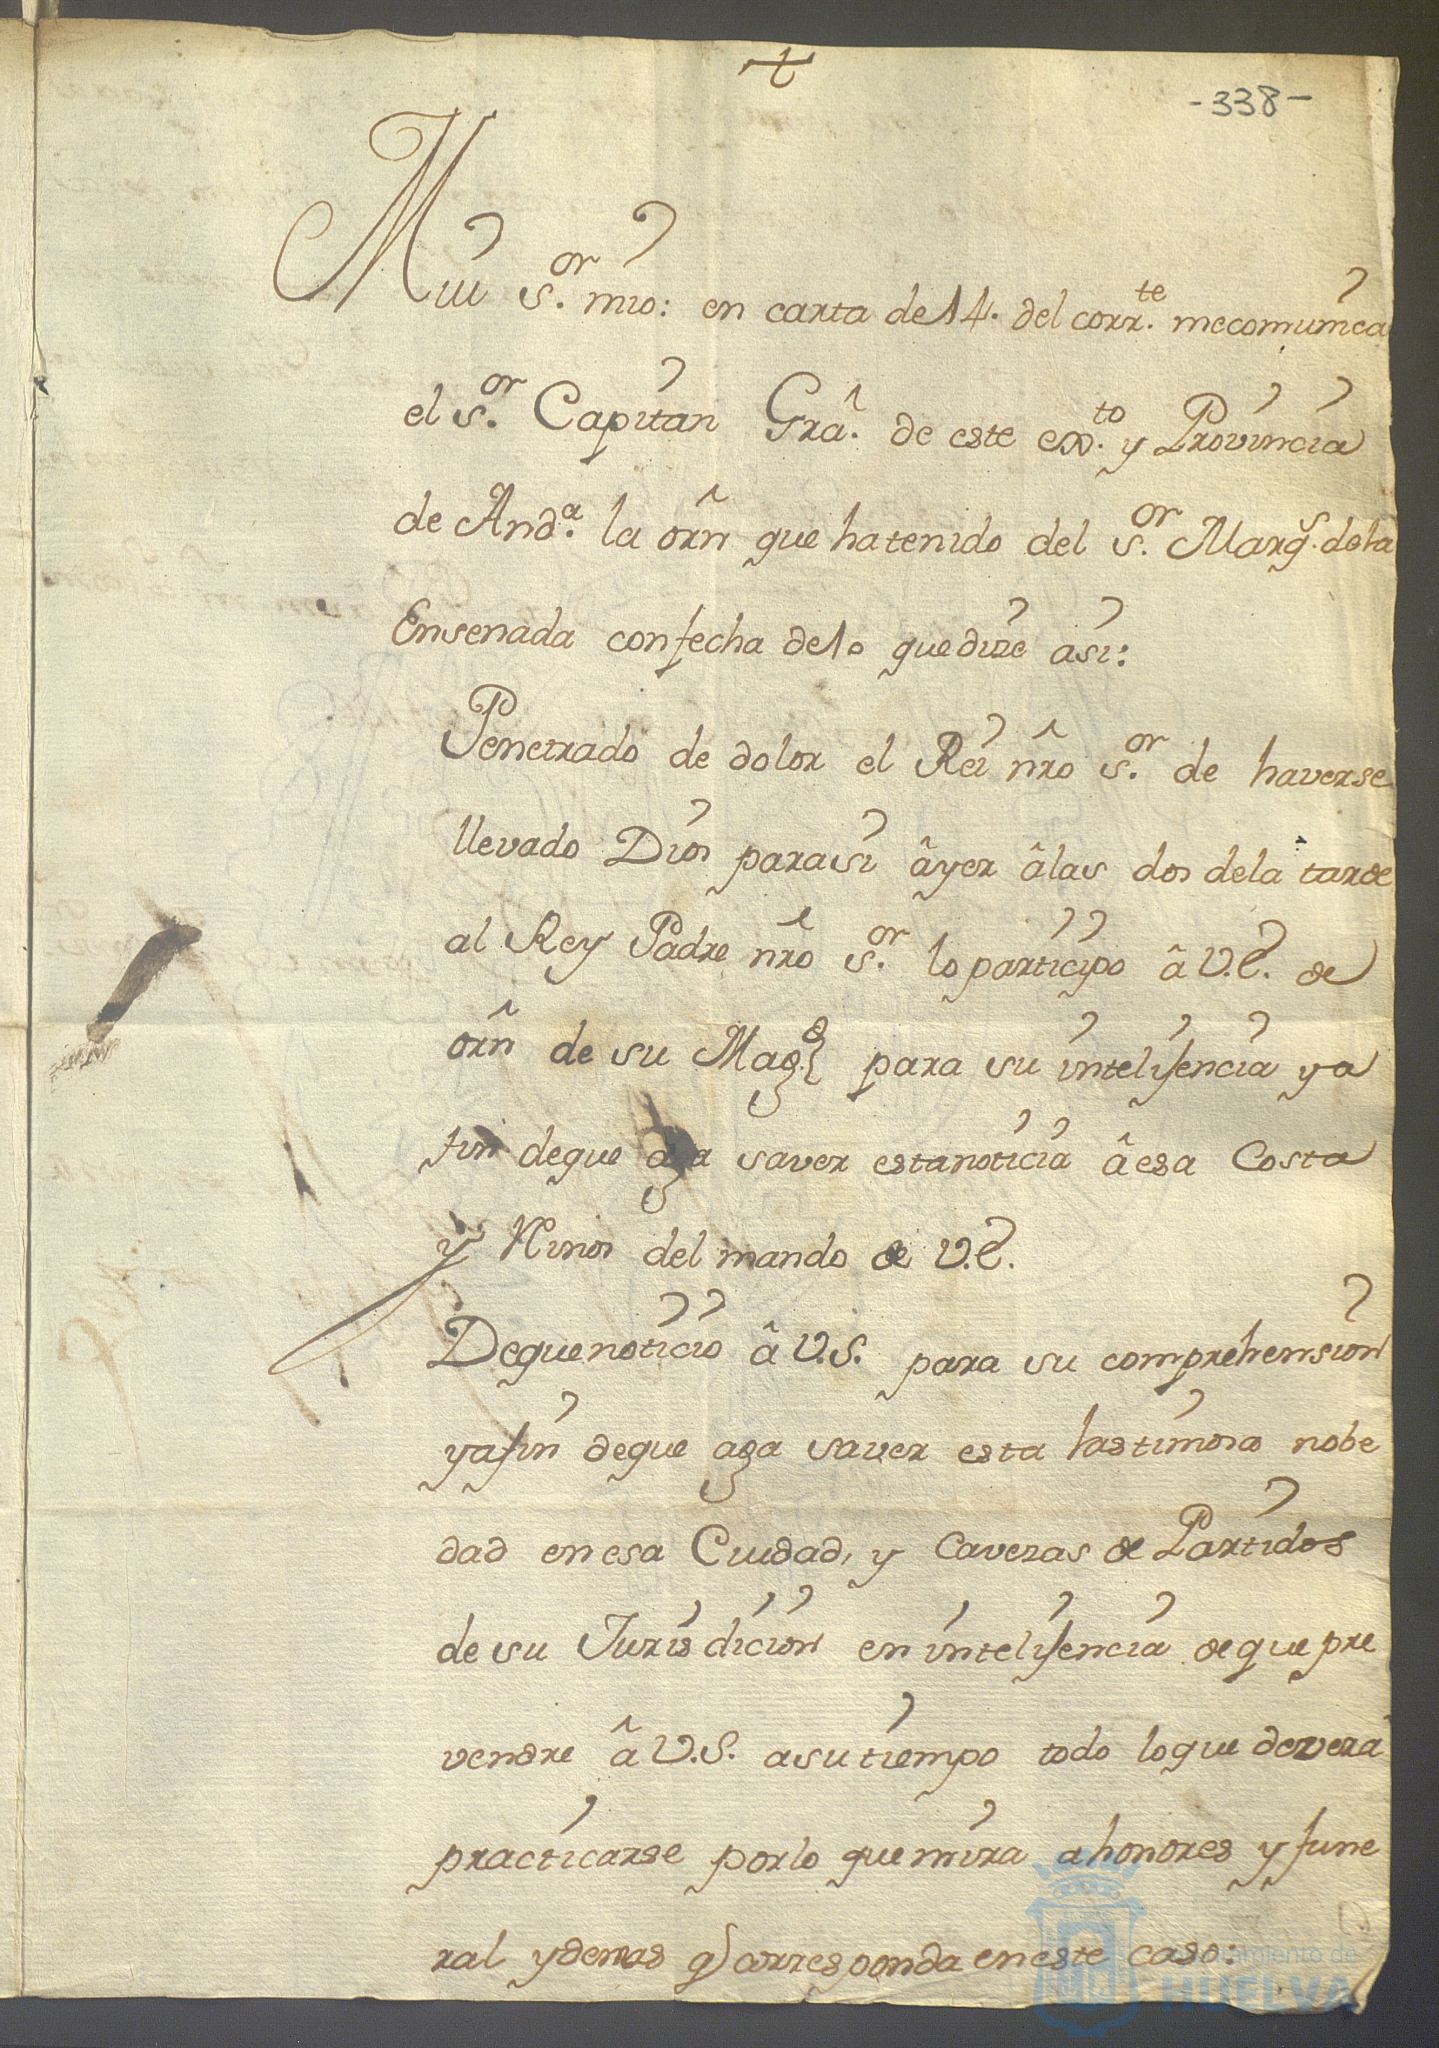 -338-
Mui s.or mio: en carta de 14. del corr.te me comunica
el s.or Capitan Grâ. de este ex.to y Provincia
de And.a la orn̂ que ha tenido del s.or Marq.s de la
Ensenada con fecha de 10 que dize asi:
Penetrado de dolor el Rei nr̂o s.or de haverse
llevado Dios para si âyer âlas dos dela tarde
al Rey Padre nr̂o s.or lo participo â V.E. de
orn̂ de su Mag.d para su intelijencia y a
fin deque aga saver esta noticia â esa Costa
y Rinos del mando de V.E.
Deque noticio â V.S. para su comprehension
y a fin deque aga saver esta lastimosa nobe
dad en esa Ciudad, y Cavezas de Partidos
de su Jurisdicion en intelijencia de que pre
vendre â V.S. a su tiempo todo loque devera
practicarse por lo que mira a honores y fune
ral y demas q corresponda en este caso:
Ayuntamiento de
HUELVA